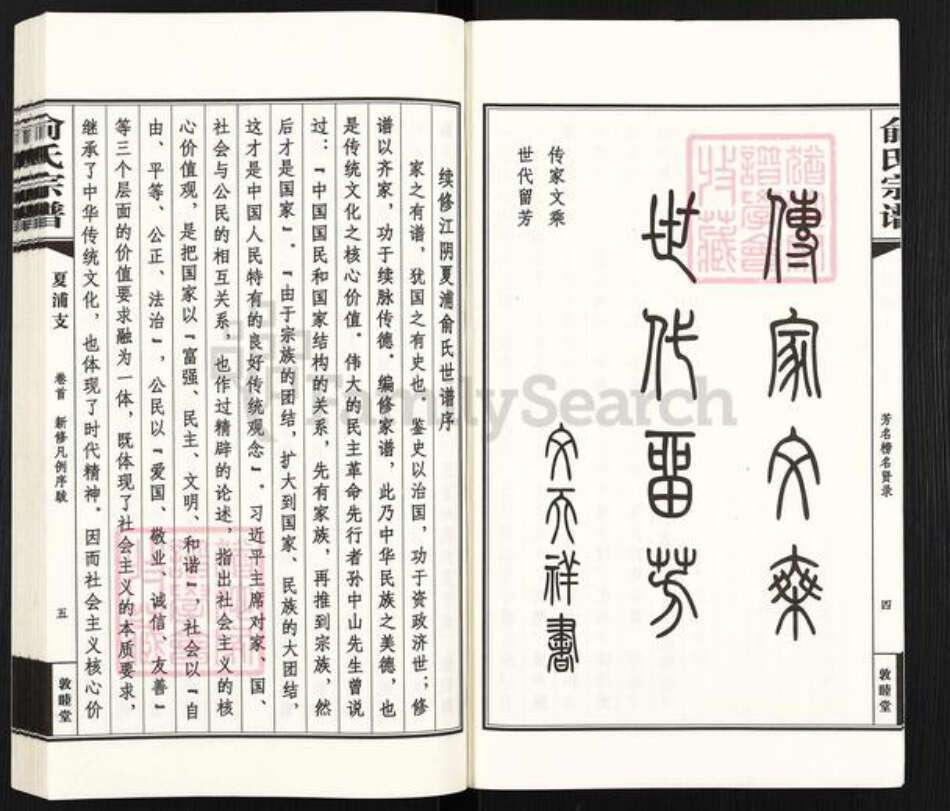 俞氏宗谱
芳名榜名贤录
四
敦睦堂
傳家文乘
世代畱芳
文天祥書
传家文乘
世代留芳
续修江阴夏浦俞氏世谱序
家之有谱，犹国之有史也。鉴史以治国，功于资政济世；修
谱以齐家，功于续脉传德。编修家谱，此乃中华民族之美德，也
是传统文化之核心价值。伟大的民主革命先行者孙中山先生曾说
过：“中国国民和国家结构的关系，先有家族，再推到宗族，然
后才是国家”。“由于宗族的团结，扩大到国家、民族的大团结，
这才是中国人民特有的良好传统观念”。习近平主席对家、国、
社会与公民的相互关系，也作过精辟的论述，指出社会主义的核
心价值观，是把国家以“富强、民主、文明、和谐”，社会以“自
由、平等、公正、法治”，公民以“爱国、敬业、诚信、友善”
等三个层面的价值要求融为一体，既体现了社会主义的本质要求，
继承了中华传统文化，也体现了时代精神。因而社会主义核心价
俞氏宗谱
夏浦支
卷首 新修凡例序跋
五
敦睦堂
FamilySearch